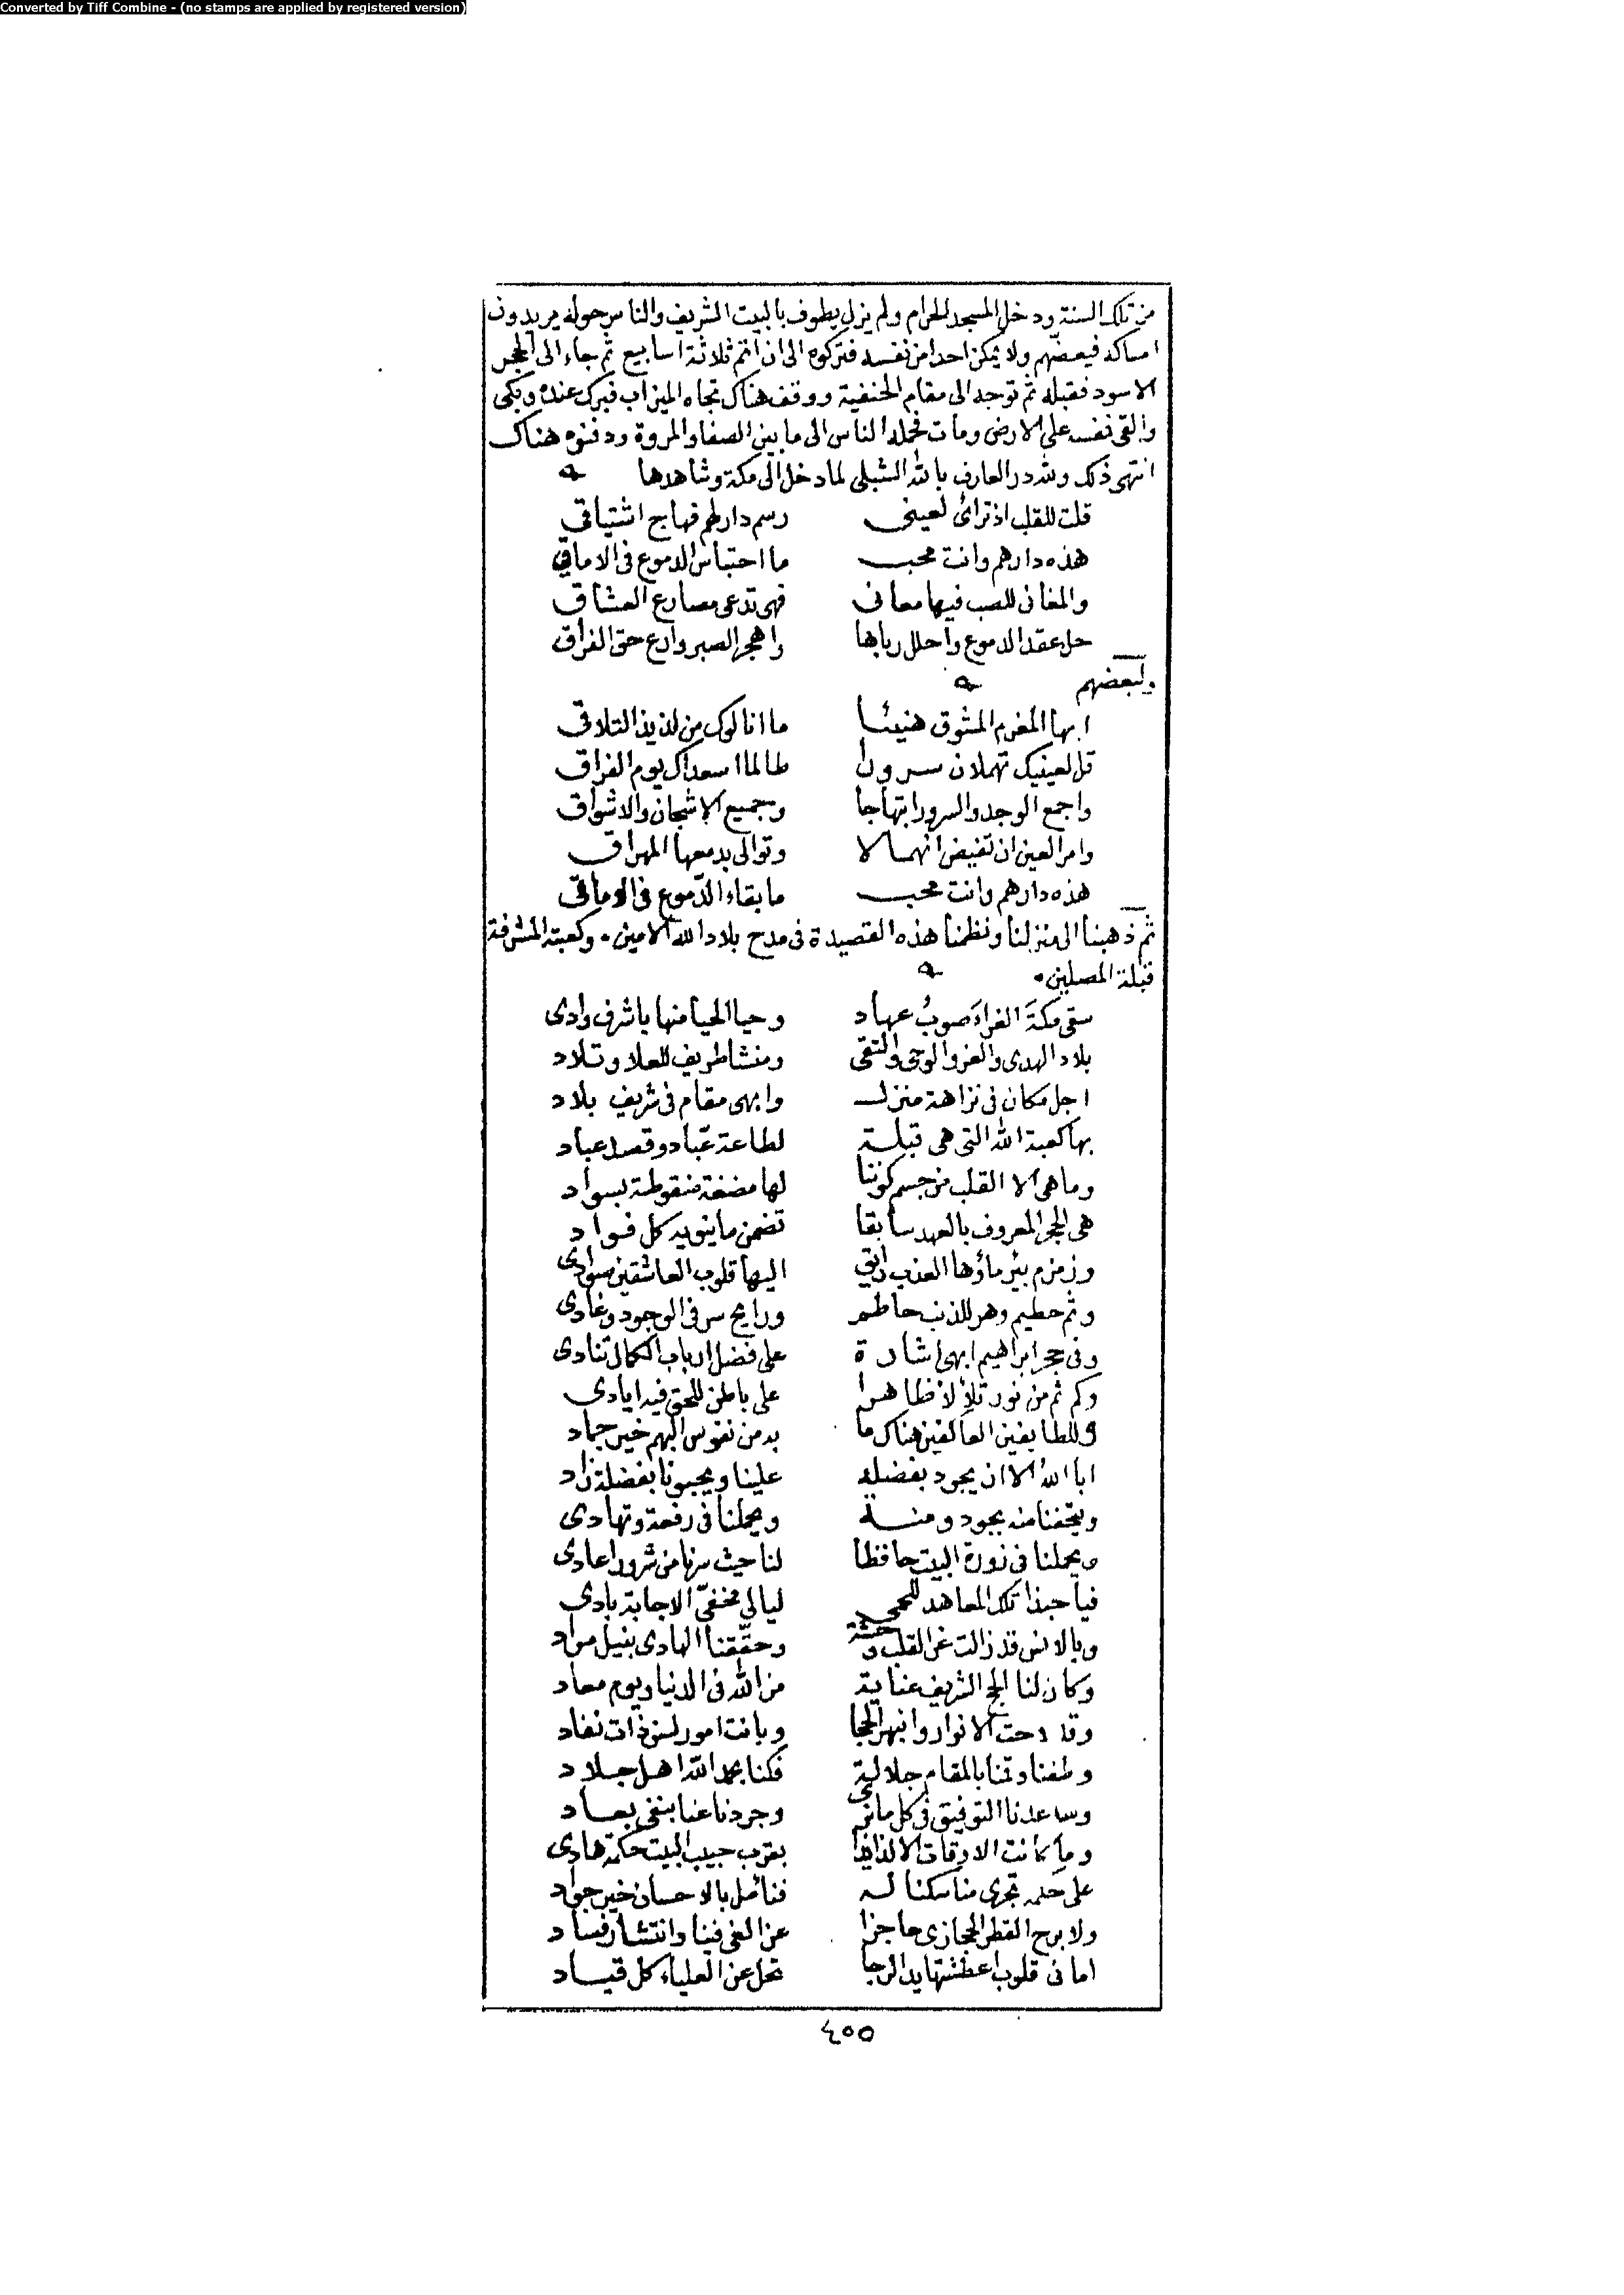 Converted by Tiff Combine - (no stamps are applied by registered version)
من تلك السنة ودخل المسجد الحرام ولم يزل يطوف بالبيت الشريف والناس حوله يريدون
امساكه فيعضهم ولا يمكن احدا من نفسه فتركوه الى ان اتم ثلاثة اسابيع ثم جاء الى الحجر
الاسود فقبله ثم توجه الى مقام الحنفية ووقف هناك تجاه الميزاب فبرك عنده وبكى
والقى نفسه على الارض ومات فحمله الناس الى ما بين الصفا والمروة ودفنوه هناك
انتهى ذلك ولله در العارف بالله الشبلي لما دخل الى مكة وشاهدها
قلت للقلب اذ تراى لعينى رسم دار لهم فهاج اشتياقى
هذه دارهم وانت محب ما احتباس الدموع فى الاماقى
والمغانى للصب فيها معانى فهى تدعى مصارع العشاق
حل عقد الدموع واحلل رباها واهجر الصبر وارع حق الفراق
ولبعضهم
ايها المغرم المشوق هنيئا ما انالوك من لذيذ التلاقى
قل لعينيك تهملان سرورا طالما اسعداك يوم الفراق
واجمع الوجد والسرور ابتهاجا وجميع الاشجان والاشواق
وامر العين ان تفيض انهمالا وتوالى بدمعها المهراق
هذه دارهم وانت محب ما بقاء الدموع فى الاماقى
ثم ذهبنا الى منزلنا ونظمنا هذه القصيدة فى مدح بلاد الله الامين. وكعبته المشرفة
قبلة المصلين.
سقى مكة الغراء صوب عهاد وحيا الحيا منها باشرف وادى
بلاد الهدى والعز والوحى والتقى ومنشا طريف للعلا وتلاد
اجل مكان فى نزاهة منزل وابهى مقام فى شريف بلاد
بها كعبة الله التى هى قبلة لطاعة عباد وقصد عباد
وما هى الا القلب من جسم كوننا لها مضغة منقوطة بسواد
هى الحجر المعروف بالعهد سابقا تضمن ما ينويه كل فواد
وزمزم بئر ماؤها العذب اليها قلوب العاشقين صوادى
وثم حطيم وهو للذنب حاطم ورايح سر فى الوجود وغادى
وفى حجر ابراهيم ابهى اشارة على فضل ارباب الكمال تنادى
وكم ثم من نور تلألأ ظاهرا على باطن للحق فيه ايادى
وللطايفين العاكفين هناك ما بد من نفوس البهم خير جماد
ابا الله الا ان يجود بفضله علينا ويحبونا بفضلة زاد
ويتحفنا منه بجود ومنة ويحملنا فى رفعة وتهادى
ويحملنا فى زورة البيت حافظا لنا حيث سرنا من شرور اعادى
فيا حبذا تلك المعاهد للحمى ليالى مخفىّ الاجابة بادى
وبالانس قد زالت عن القلب وحشة وحققنا الهادى بنيل مراد
وكان لنا الحج الشريف عناية من الله فى الدنيا ويوم معاد
وقد لاحت الانوار وانبهر الحجا وبانت امور لسن ذات نفاد
وطفنا وقمنا بالمقام جلالة فكنا بحمد الله اهل جلاد
وساعدنا التوفيق فى كل مانرى وجردنا عنا بنفى بعاد
وما كانت الاوقات الا لذايذا بقرب حبيب البيت حكمة هادى
على حلمه تجرى مناسكنا له فنامل بالاحسان خير جواد
ولا برح القطر الحجازى حاجزا عن الغى فينا وانتشار فساد
امانى قلوب اعطشتها يد الرجا تحل عن العلياء كل قياد
٤٥٥